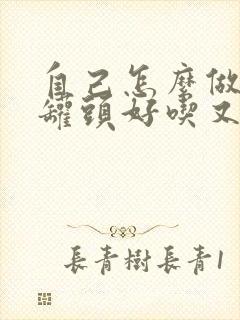 自己怎麼做
罐頭好喫又
長青樹長青1